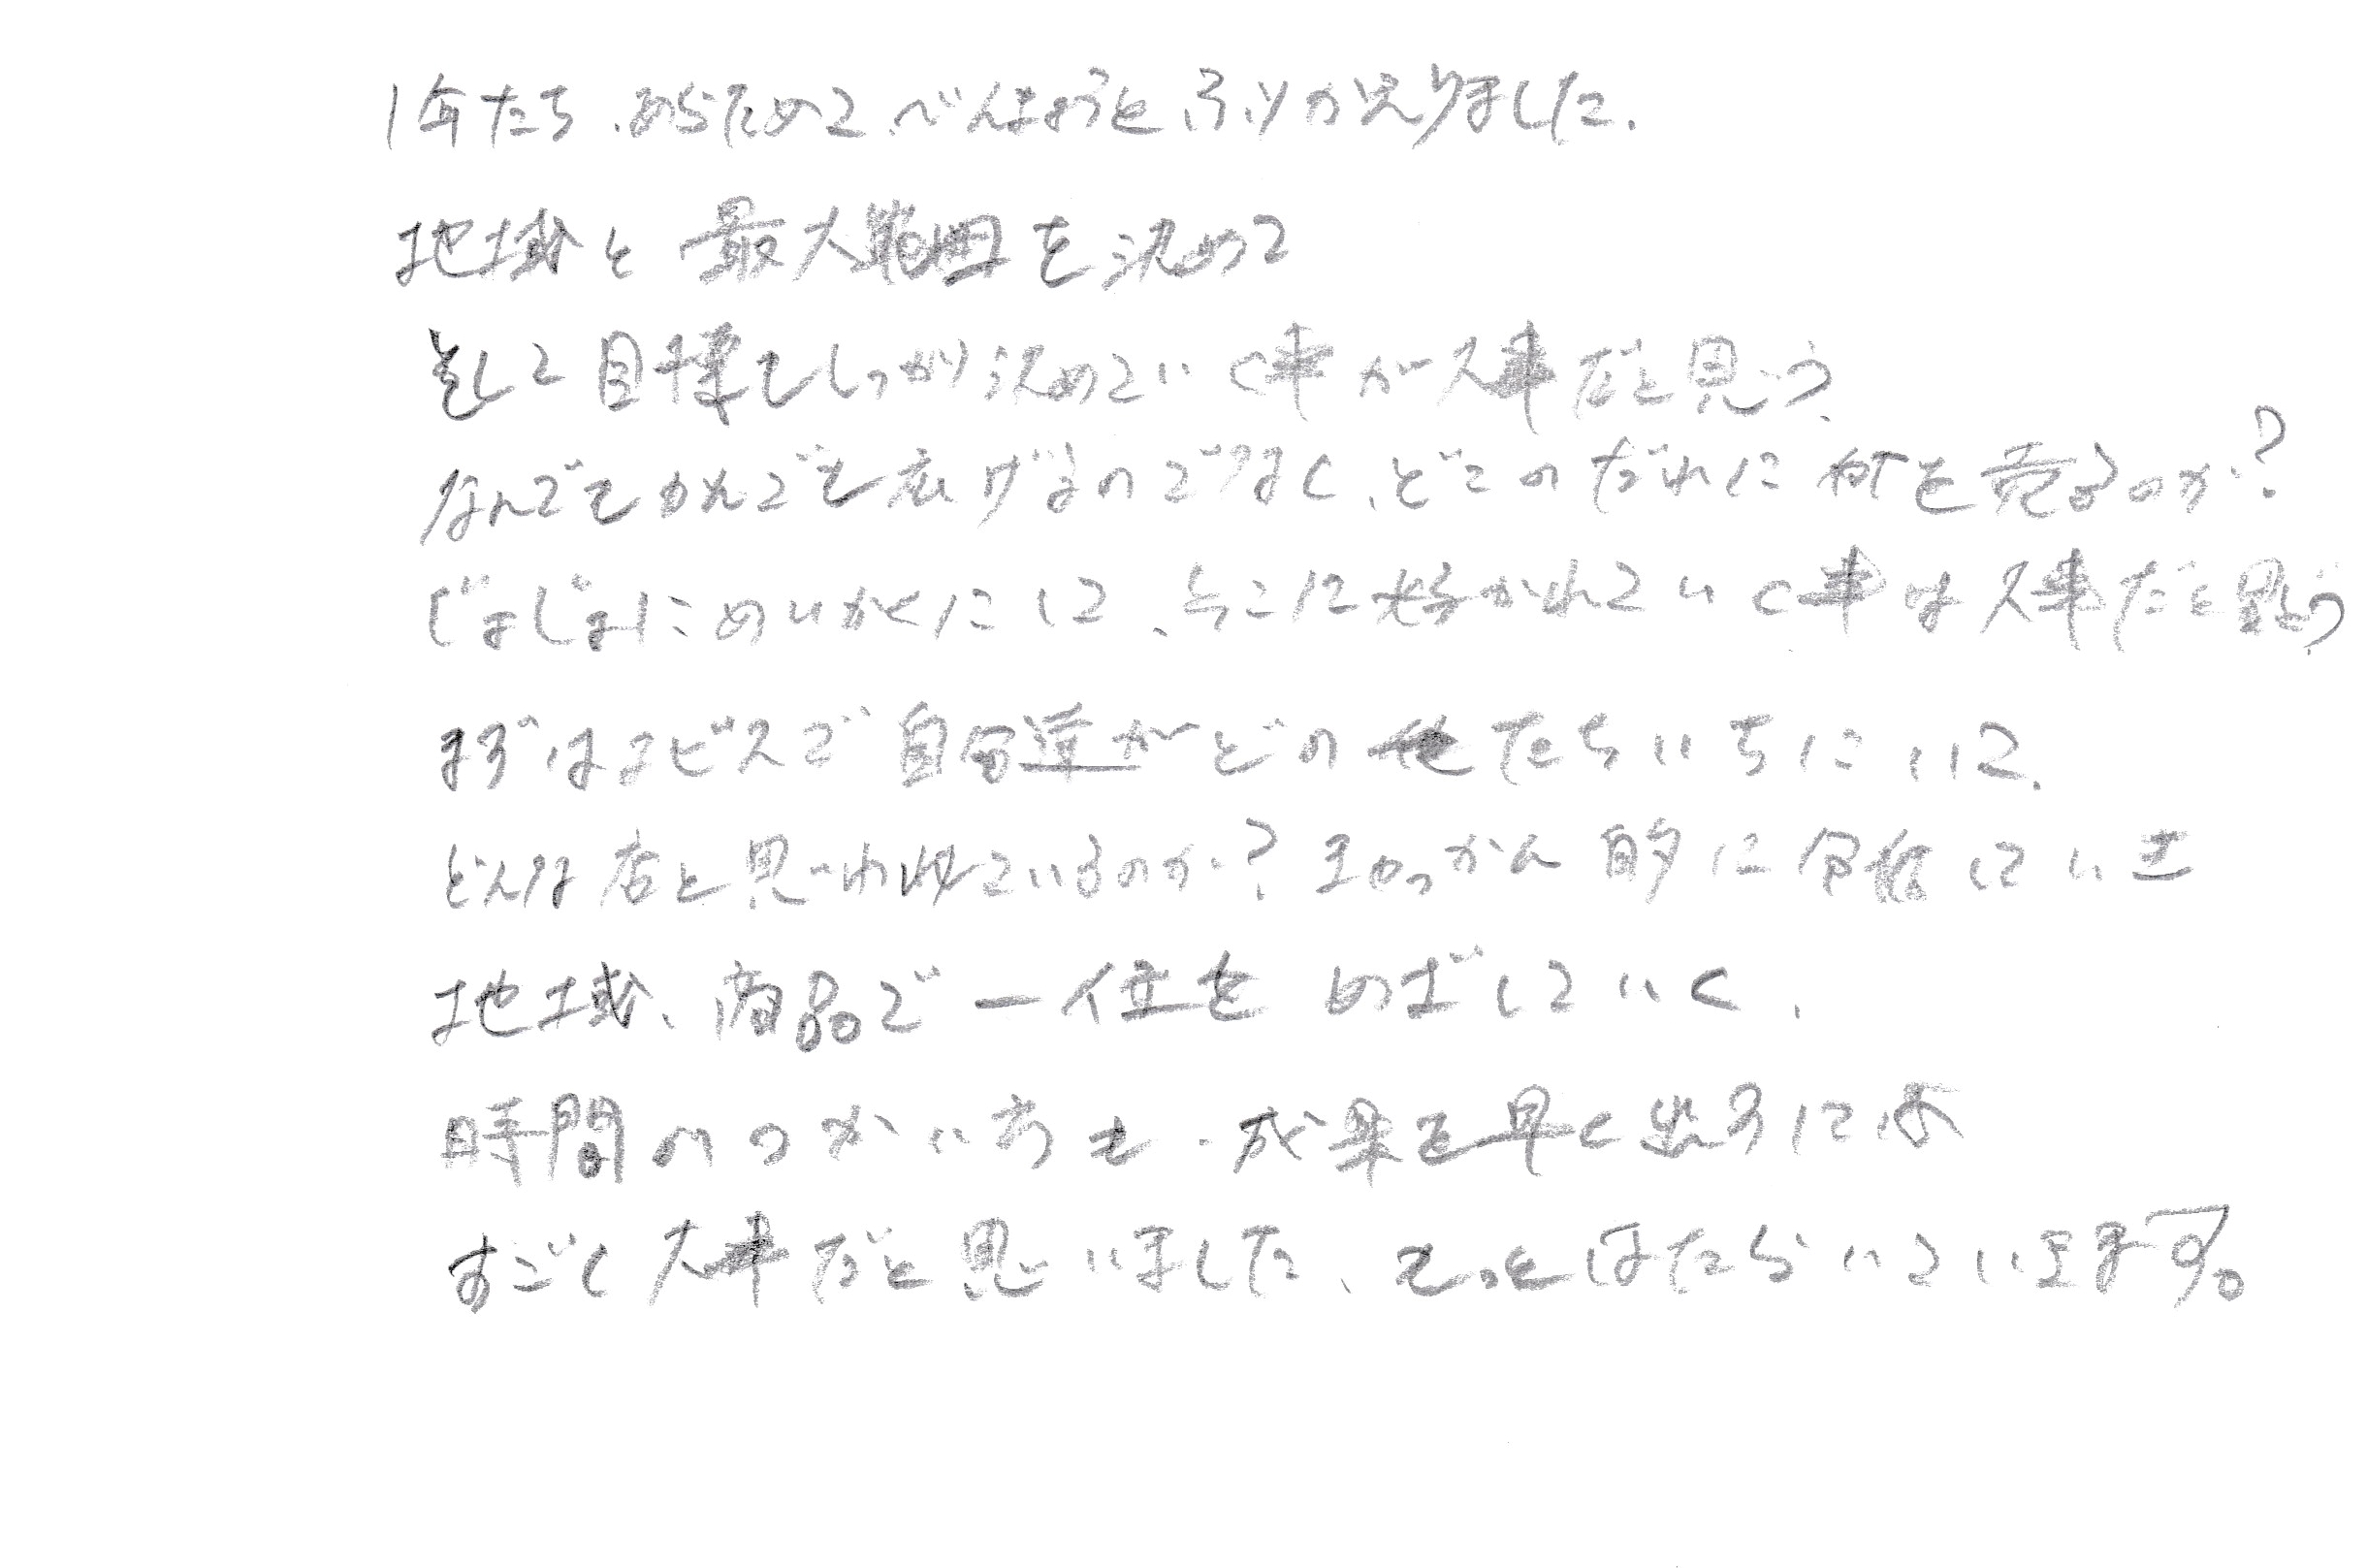 1年たち、あらためて、べんきょうをふりかえりました。
地域と最大範囲を決めて
そして目標もしっかり決めていく事が大事だと思う、
なんでもかんでも広げるのでなく、どこのだれに何を売るのか?
じょじょにめいかくにして、そこに好かれていく事は大事だと思う、
まずはマビスで自分達がどのたちいちにいて、
どんな店と思いわれているのか?キャっかん的に分析していき
地域、商品で一位をめざしていく、
時間のつかい方も、成果を早く出すには
すごく大事だと思いました、もっとはたらいていきます。